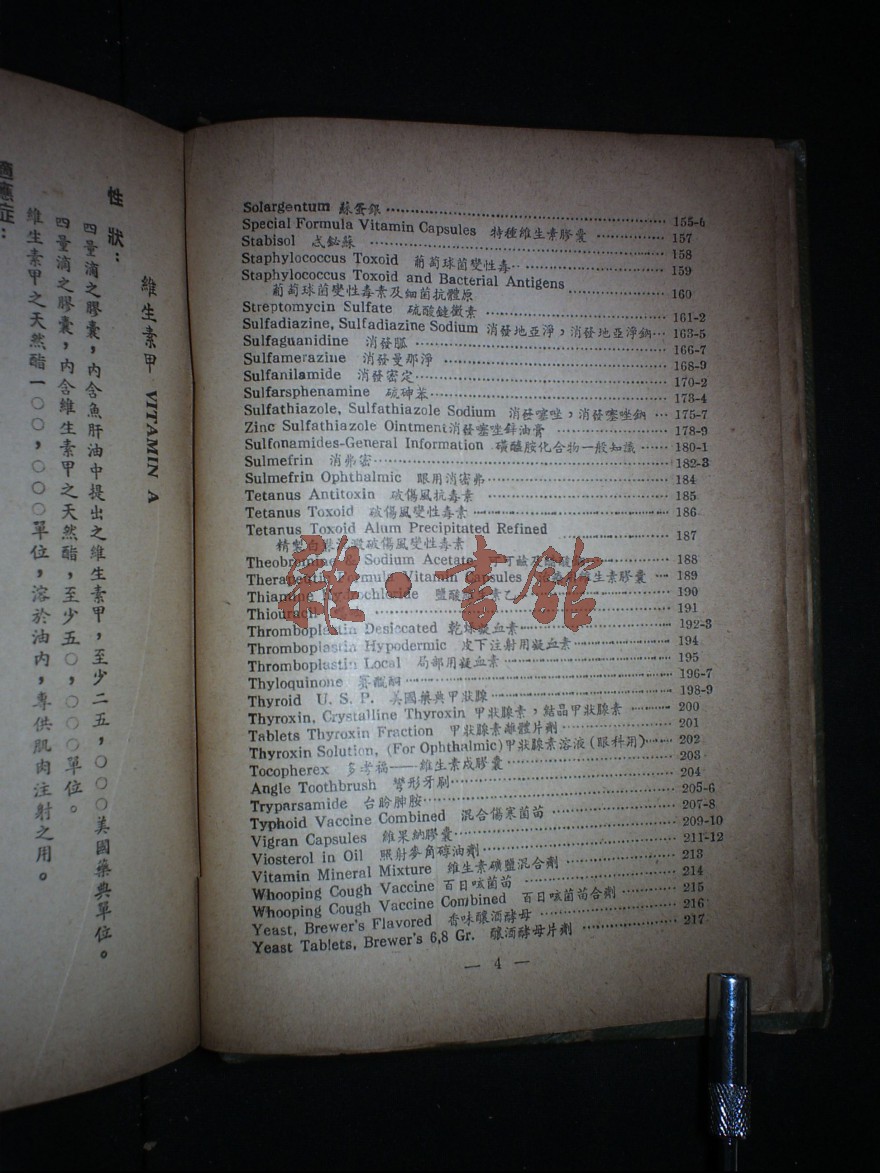 Solargentum 蘇蛋銀 155-6
Special Formula Vitamin Capsules 特種維生素膠囊 157
Stabisol 忒鉍蘇 158
Staphylococcus Toxoid 葡萄球菌變性毒 159
Staphylococcus Toxoid and Bacterial Antigens
葡萄球菌變性毒素及細菌抗體原 160
Streptomycin Sulfate 硫酸鏈黴素 161-2
Sulfadiazine, Sulfadiazine Sodium 消發地亞淨，消發地亞淨鈉 163-5
Sulfaguanidine 消發胍 166-7
Sulfamerazine 消發曼那淨 168-9
Sulfanilamide 消發密定 170-2
Sulfarsphenamine 硫砷苯 173-4
Sulfathiazole, Sulfathiazole Sodium 消發噻唑，消發噻唑鈉 175-7
Zinc Sulfathiazole Ointment消發噻唑鋅油膏 178-9
Sulfonamides-General Information 磺醯胺化合物一般知識 180-1
Sulmefrin 消弗密 182-3
Sulmefrin Ophthalmic 眼用消密弗 184
Tetanus Antitoxin 破傷風抗毒素 185
Tetanus Toxoid 破傷風變性毒素 186
Tetanus Toxoid Alum Precipitated Refined 187
精製白礬沉澱破傷風變性毒素
Theobromine & Sodium Acetate 188
Therapeutic Formula Vitamin Capsules 維生素膠囊 189
Thiamine Hydrochloride 鹽酸 素乙 190
Thiouracil 191
Thromboplastin Desiccated 乾燥凝血素 192-3
Thromboplastin Hypodermic 皮下注射用凝血素 194
Thromboplastin Local 局部用凝血素 195
Thyloquinone 196-7
Thyroid U. S. P. 美國藥典甲狀腺 198-9
Thyroxin, Crystalline Thyroxin 甲狀腺素，結晶甲狀腺素 200
Tablets Thyroxin Fraction 甲狀腺素離體片劑 201
Thyroxin Solution, (For Ophthalmic)甲狀腺素溶液(眼科用) 202
Tocopherex 多孝福——維生素戍膠囊 203
Angle Toothbrush 彎形牙刷 204
Tryparsamide 台盼胂胺 205-6
Typhoid Vaccine Combined 混合傷寒菌苗 207-8
Vigran Capsules 維果納膠囊 209-10
Viosterol in Oil 照射麥角醇油劑 211-12
Vitamin Mineral Mixture 維生素礦鹽混合劑 213
Whooping Cough Vaccine 百日咳菌苗 214
Whooping Cough Vaccine Combined 百日咳菌苗合劑 215
Yeast, Brewer's Flavored 香味釀酒酵母 216
Yeast Tablets, Brewer's 6,8 Gr. 釀酒酵母片劑 217
— 4 —
維生素甲 VITAMIN A
性狀：
四量滴之膠囊，內含魚肝油中提出之維生素甲，至少二五，〇〇〇美國藥典單位。
四量滴之膠囊，內含維生素甲之天然酯，至少五〇，〇〇〇單位。
維生素甲之天然酯一〇〇，〇〇〇單位，溶於油內，專供肌肉注射之用。
適應症：
雜·書館